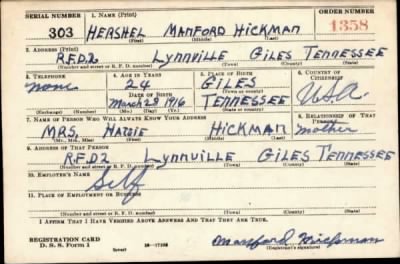 SERIAL NUMBER 1. NAME (Print) ORDER NUMBER
303 HERSHEL MANFORD HICKMAN 1358
(First) (Middle) (Last)
2. ADDRESS (Print)
R.F.D.2 LYNNVILLE GILES TENNESSEE
(Number and street or R. F. D. number) (Town) (County) (State)
3. TELEPHONE 4. AGE IN YEARS 5. PLACE OF BIRTH 6. COUNTRY OF CITIZENSHIP
none 24 GILES
DATE OF BIRTH (Town or county)
March 28 1916 TENNESSEE U.S.A.
(Exchange) (Number) (Mo.) (Day) (Yr.) (State or country)
7. NAME OF PERSON WHO WILL ALWAYS KNOW YOUR ADDRESS 8. RELATIONSHIP OF THAT PERSON
MRS. HICKMAN mother
(Mr., Mrs., Miss) (First) (Middle) (Last)
9. ADDRESS OF THAT PERSON
R.F.D2 LYNNVILLE GILES TENNESSEE
(Number and street or R. F. D. number) (Town) (County) (State)
10. EMPLOYER'S NAME
Self
11. PLACE OF EMPLOYMENT OR BUSINESS
(Number and street or R. F. D. number) (Town) (County) (State)
I AFFIRM THAT I HAVE VERIFIED ABOVE ANSWERS AND THAT THEY ARE TRUE.
REGISTRATION CARD
D. S. S. FORM 1 (over) 16—17105 Manford Hickman
(Registrant's signature)